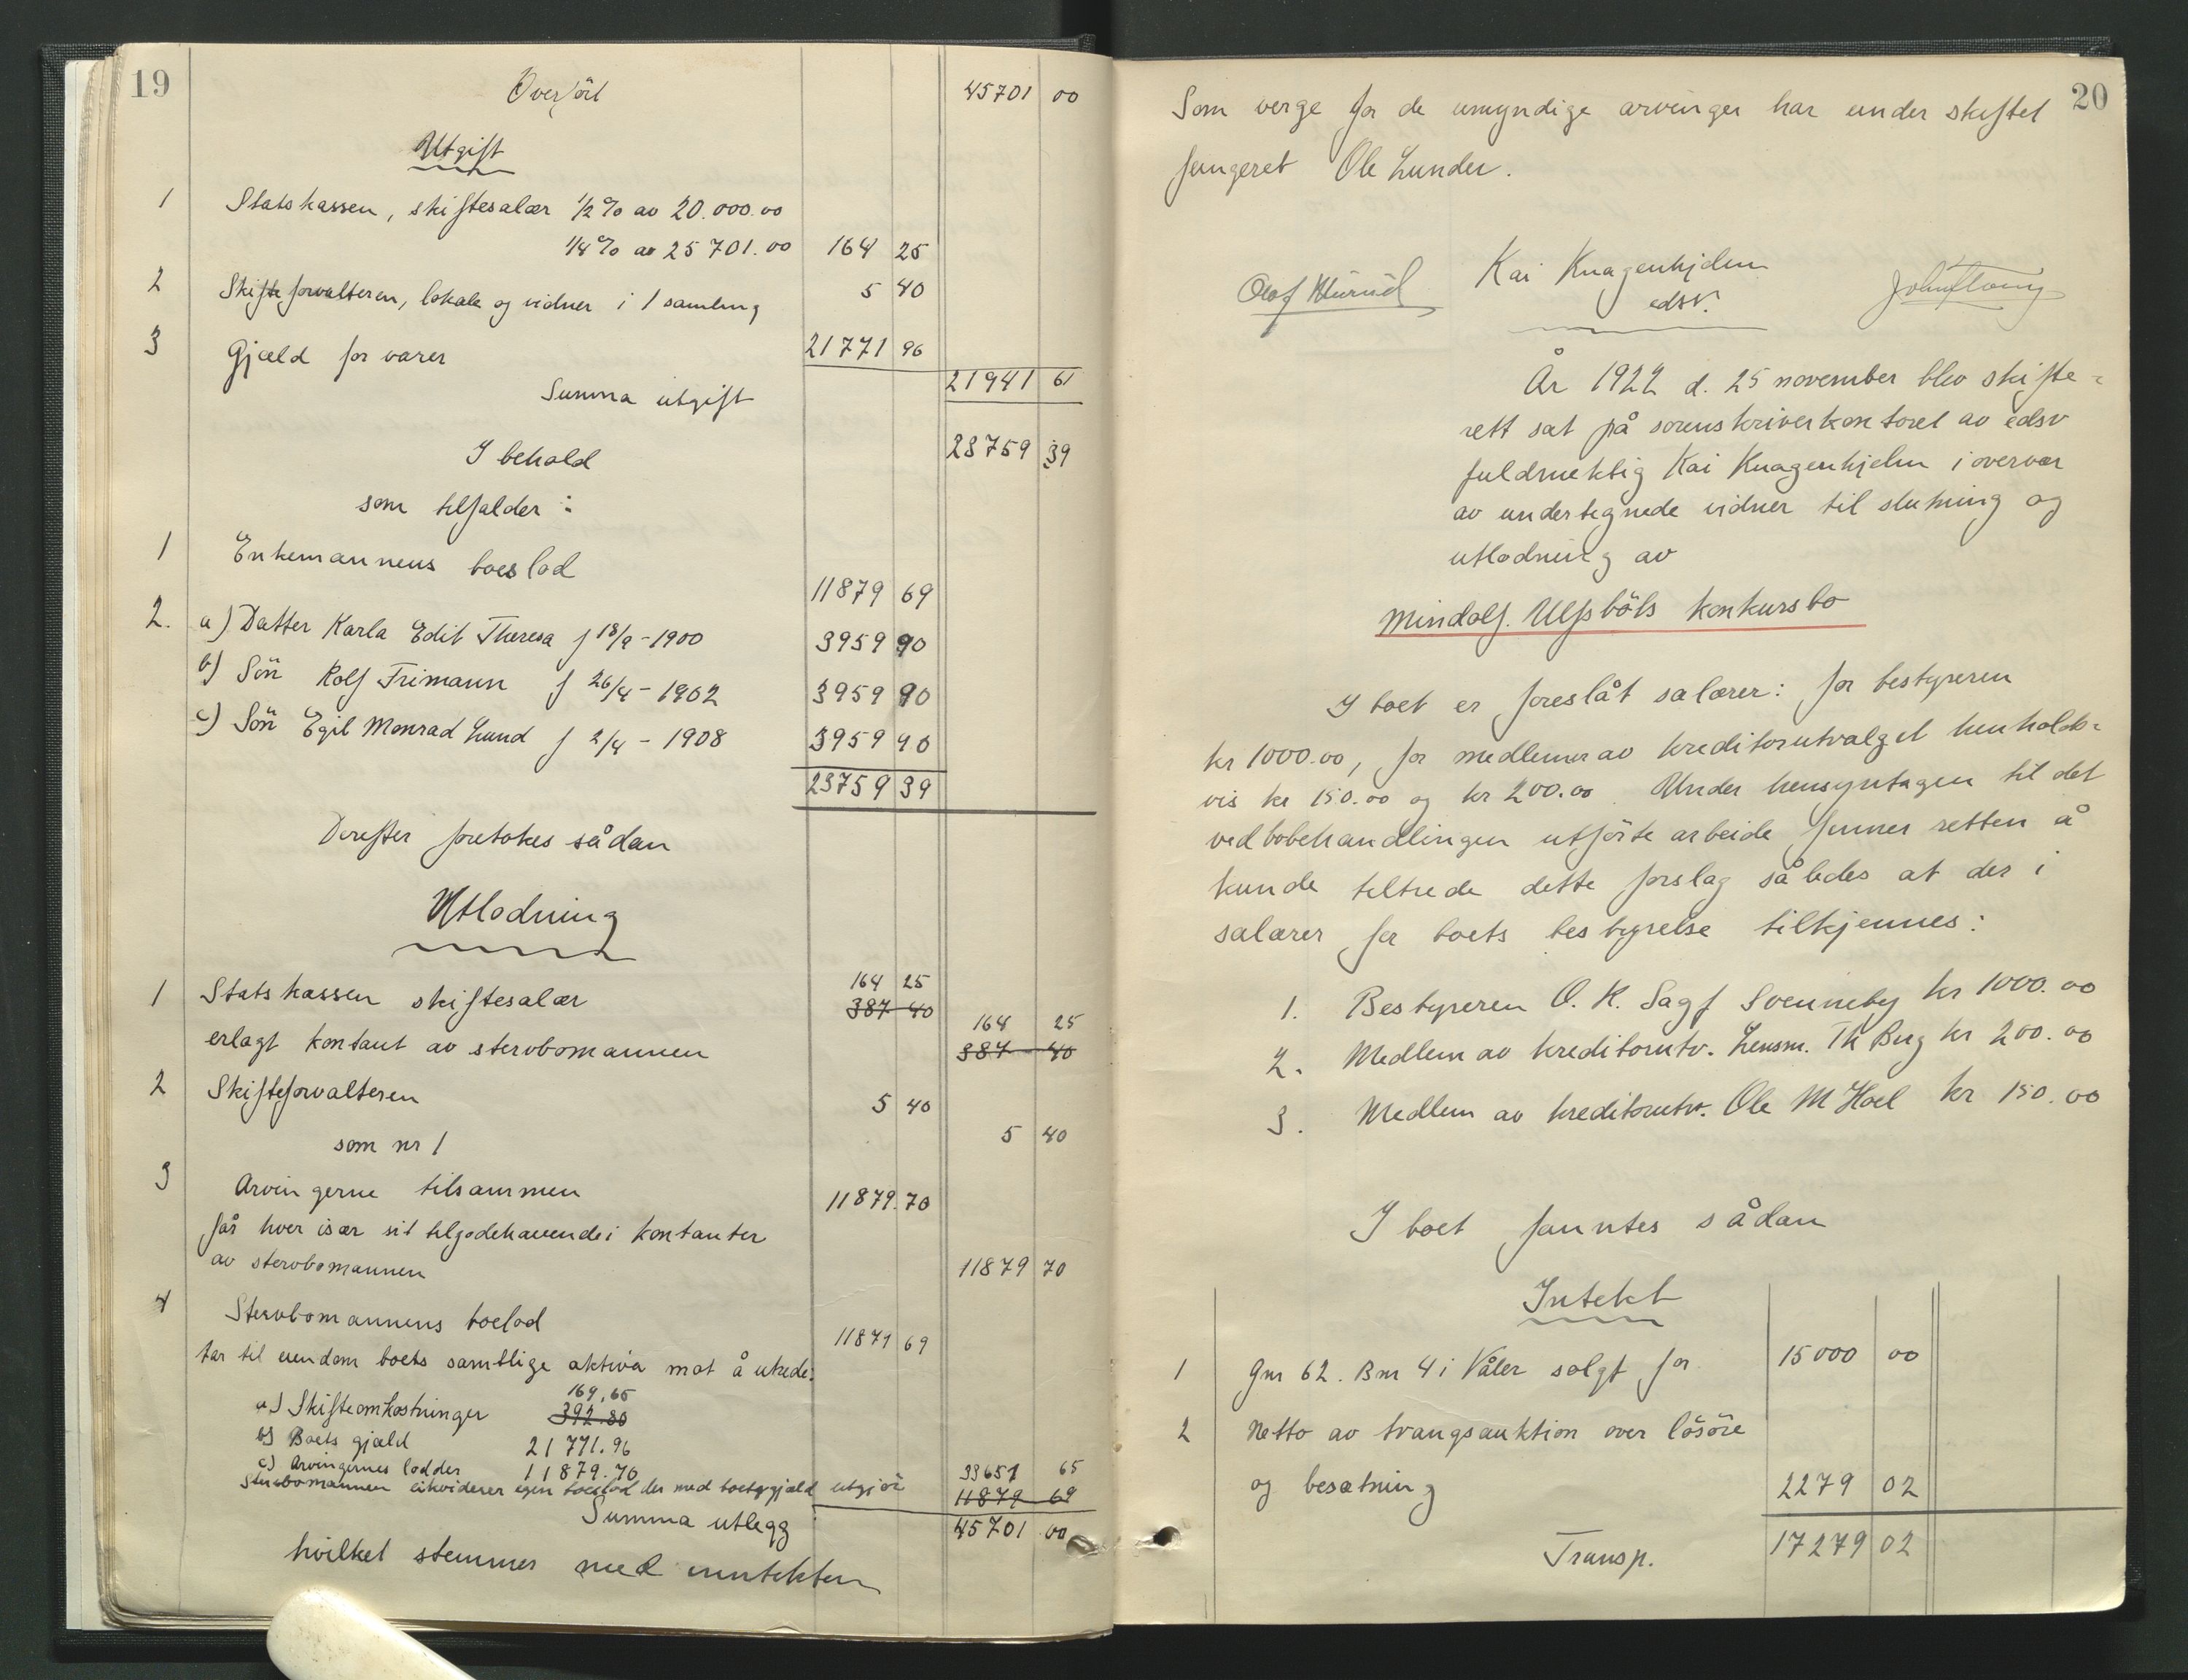 19
Overført 45701 00
Utgift
1 Statskassen, skiftesalær 1/2 % av 20.000.00
1/4 % av 25701.00 164 25
2 Skifteforvalteren, lokale og vidner i 1 samling 5 40
3 Gjæld for varer 21771 96
21941 61
Summa utgift
I behold 23759 39
som tilfalder :
1 Enkemannens boeslod 11879 69
2. a) Datter Karla Edit Theresa f 18/9 - 1900 3959 90
b) Søn Rolf Frimann f 26/4 - 1902 3959 90
c) Søn Egil Monrad Lund f 2/4 - 1908 3959 90
23759 39
Derefter foretokes sådan
Utlodning
164 25
1 Statskassen skiftesalær 387 40
164 25
erlagt kontant av stervbomannen 387 40
2 Skifteforvalteren 5 40
som nr 1 5 40
3 Arvingerne tilsammen 11879.70
får hver især sit tilgodehavende i kontanter
av stervbomannen 11879 70
4 Stervbomannens boelod 11879 69
tar til eiendom boets samtlige aktiva mot å utrede:
169.65
a) Skifteomkostninger 392.80
b) Boets gjæld 21771.96
c) Arvingernes lodder 11879.70
33651 65
Stervbomannen likviderer egen boeslod der med boets gjæld utgjør 11879 69
Summa utlegg 45701 00
hvilket stemmer med inntekten
20
Som verge for de umyndige arvinger har under skiftet
fungeret Ole Lunder.
Kai Knagenhjelm
edsv.
År 1922 d. 25 november blev skifte=
rett sat på sorenskriverkontoret av edsv
fuldmektig Kai Knagenhjelm i overvær
av undertegnede vidner til slutning og
utlodning av
Mindolf Ulfsbøls konkursbo
I boet er foreslåt salærer: for bestyreren
kr 1000.00, for medlemer av kreditorutvalget henholds=
vis kr 150.00 og kr 200.00. Under hensyntagen til det
ved bobehandlingen utførte arbeide finner retten å
kunde tiltrede dette forslag således at der i
salærer for boets bestyrelse tilkjennes:
1. Bestyreren O. K. Sagf Svenneby kr 1000.00
2. Medlem av kreditorutv. Lensm. Th Berg kr 200.00
3. Medlem av kreditorutv. Ole M Hoel kr 150.00
I boet fanntes sådan
Intekt
1 Gnr 62. Bnr 4 i Våler solgt for 15000 00
2 Netto av tvangsauktion over løsøre
og besætning 2279 02
Transp. 17279 02